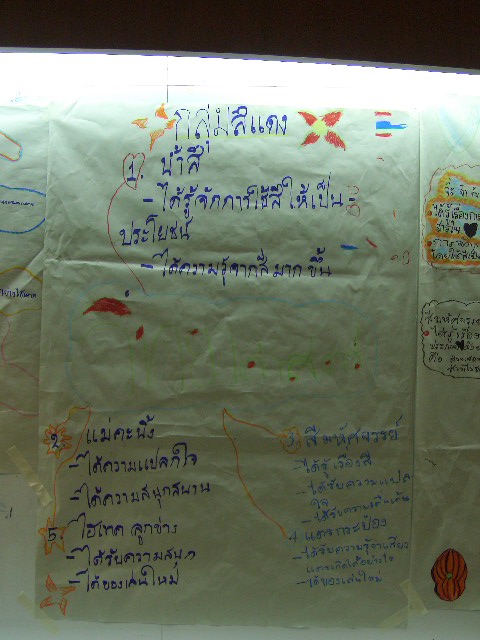 กลุ่มสีแดง
1. บ้าสี
- ได้รู้จักการใช้สีให้เป็น-
ประโยชน์
- ได้ความรู้จากสี มาก ขึ้น
2 แม่คะนิ้ง
- ได้ความแปลกใจ
- ได้ความสนุกสนาน
5. ไฮเทค ลูกข่าง
- ได้รับความสนุก
- ได้ของเล่นใหม่
3. สีมหัศจรรย์
- ได้รู้เรื่องสี
- ได้รับความแปลก
- ได้รับความตื่นเต้น
4. แตรกระป๋อง
- ได้รับความรู้ว่าเสียง
แตรเกิดได้อย่างไร
- ได้ของเล่นใหม่